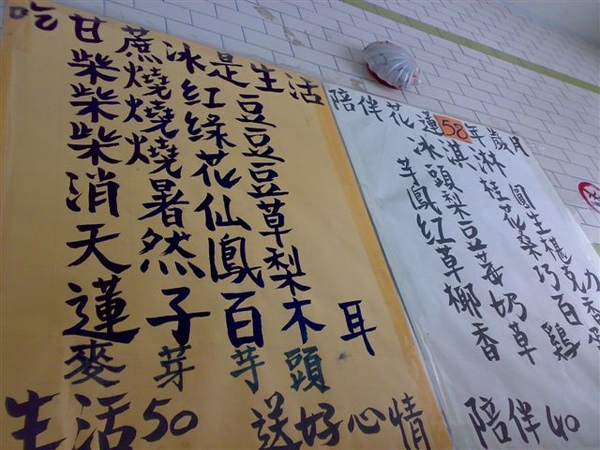 吃甘蔗冰是生活
柴燒紅豆
柴燒綠豆
柴燒花豆
消暑仙草
天然鳳梨
蓮子百木耳
麥芽芋頭
生活50 送好心情
陪伴花蓮58年歲月
冰淇淋
芋頭 桂圓
鳳梨 花生
紅豆 桑椹
草莓 巧克力
椰奶 百香
香草 雞蛋
陪伴40